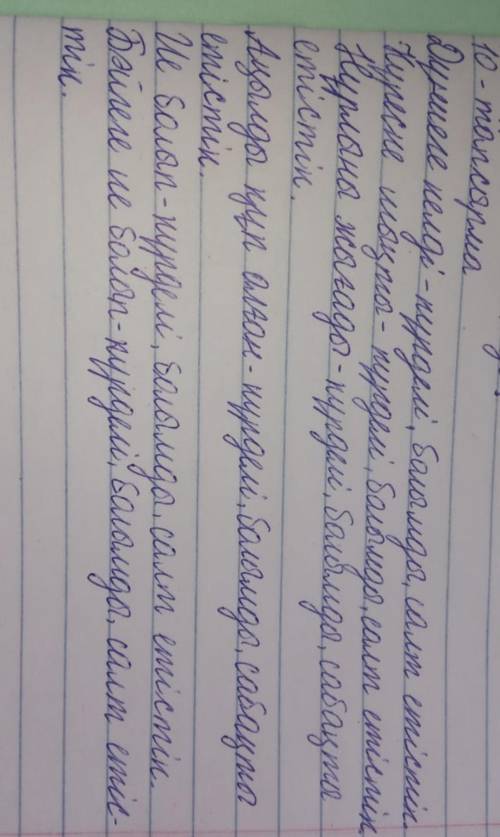 10 - тапсырма
Дүниеге келді - күрделі, болымды, салт етістік.
Күреске шақыта - күрделі, болымды, салт етістік.
Құрлыны жығады - күрделі, болымды, сабақты
етістік.
Ақылды күш алған - күрделі, болымды, сабақты
етістік.
Ие болып - күрделі, болымды, салт етістік.
Бәйгеге ие болып - күрделі, болымды, салт етіс-
тік.